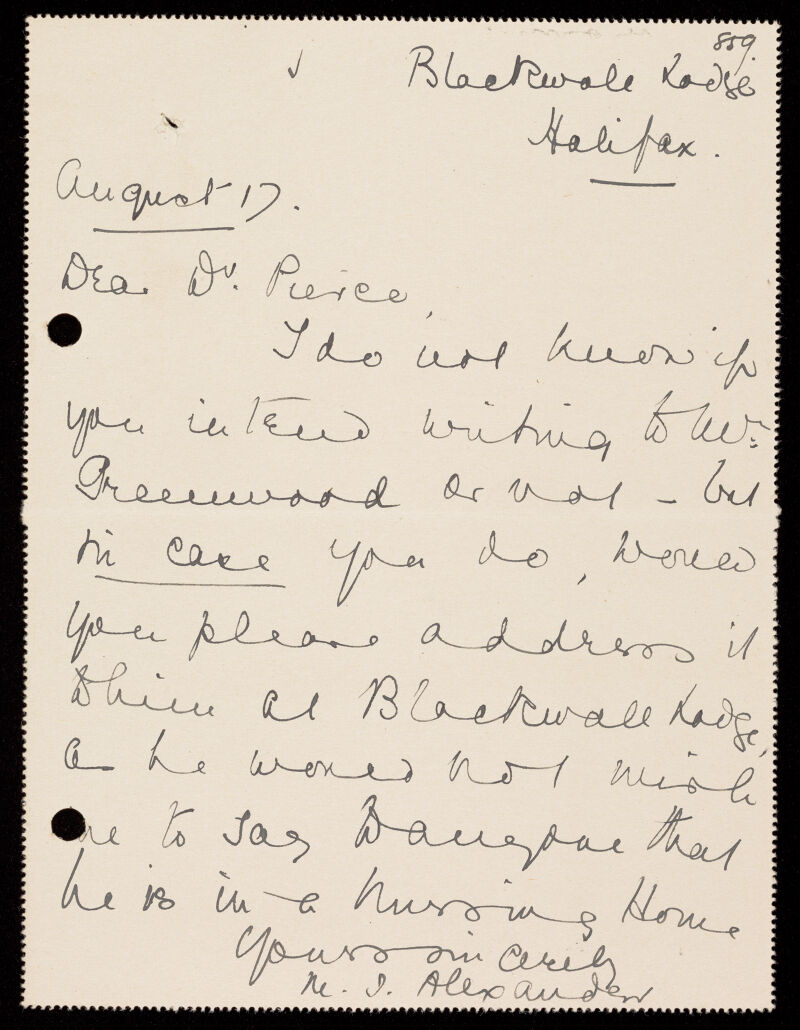 859.
Blackwall Lodge
Halifax.
August 17.
Dear Dr. Pierce,
I do not know if
you intend writing to Mr.
Greenwood or not - but
in case you do, would
you please address it
to him at Blackwall Lodge,
as he would not wish
me to say to anyone that
he is in a Nursing Home
Yours sincerely
M. I. Alexander